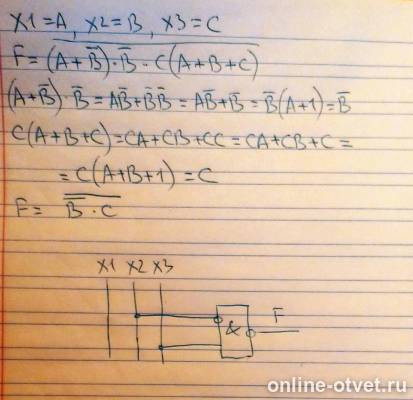 X1=A, X2=B, X3=C
F=\overline{(A+B̅)·B̅·C(A+B+C)}
(A+B̅)·B̅=AB̅+B̅B̅=AB̅+B̅=B̅(A+1)=B̅
C(A+B+C)=CA+CB+CC=CA+CB+C=
=C(A+B+1)=C
F=\overline{B̅·C}
X1 X2 X3
& F
online-otvet.ru